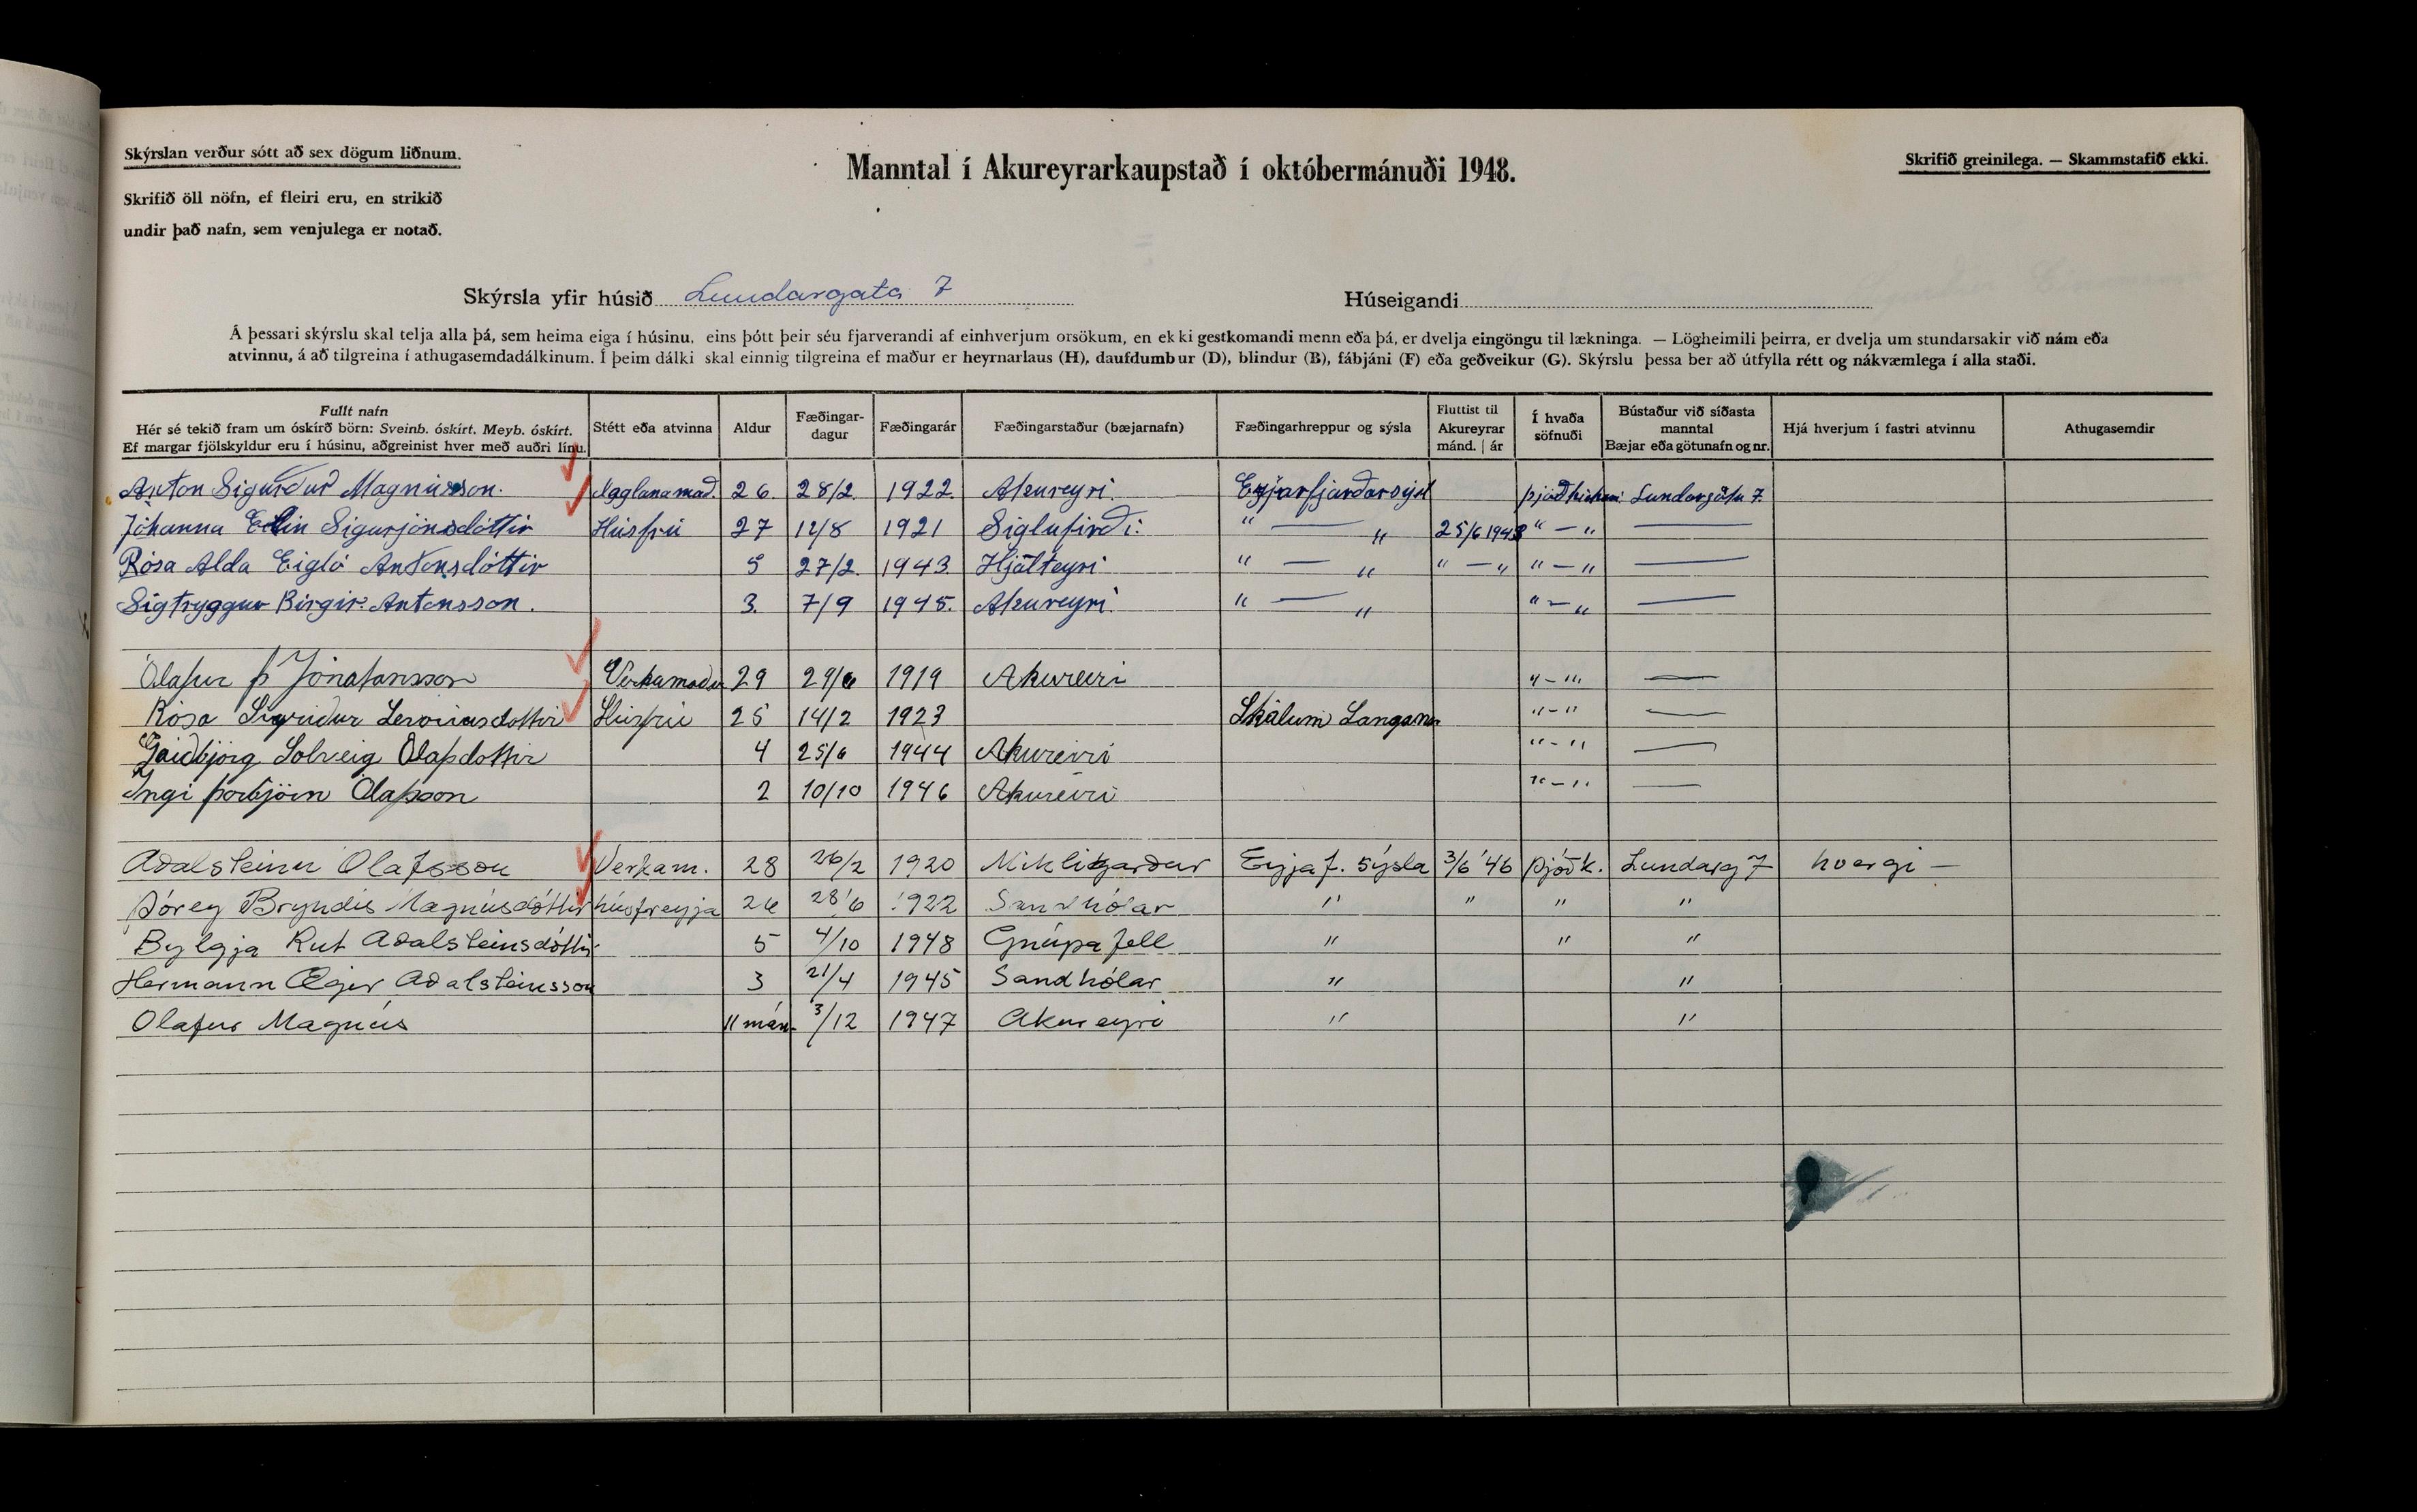 Skýrslan verður sótt að sex dögum liðnum.
Manntal í Akureyrarkaupstað í októbermánuði 1948.
Skrifið greinilega. — Skammstafið ekki.
Skrifið öll nöfn, ef fleiri eru, en strikið
undir það nafn, sem venjulega er notað.
Skýrsla yfir húsið Lundargata 7 Húseigandi
Á þessari skýrslu skal telja alla þá, sem heima eiga í húsinu, eins þótt þeir séu fjarverandi af einhverjum orsökum, en ekki gestkomandi menn eða þá, er dvelja eingöngu til lækninga. — Lögheimili þeirra, er dvelja um stundarsakir við nám eða
atvinnu, á að tilgreina í athugasemdadálkinum. Í þeim dálki skal einnig tilgreina ef maður er heyrnarlaus (H), daufdumbur (D), blindur (B), fábjáni (F) eða geðveikur (G). Skýrslu þessa ber að útfylla rétt og nákvæmlega í alla staði.
Fullt nafn
Hér sé tekið fram um óskírð börn: Sveinb. óskírt. Meyb. óskírt.
Ef margar fjölskyldur eru í húsinu, aðgreinist hver með auðri línu.
Stétt eða atvinna
Aldur
Fæðingar-
dagur
Fæðingarár
Fæðingarstaður (bæjarnafn)
Fæðingarhreppur og sýsla
Fluttist til
Akureyrar
mánd. | ár
Í hvaða
söfnuði
Bústaður við síðasta
manntal
Bæjar eða götunafn og nr.
Hjá hverjum í fastri atvinnu
Athugasemdir
Anton Sigurður Magnússon. 26. 28/2. 1922. Akureyri. Eyjarfjarðarsýsl Lundargötu 7.
Jóhanna Elin Sigurjónsdóttir Húsfrú 27 12/8 1921 Siglufirði. " — " 25/6 1943 " — " —
Rósa Alda Eigló Antonsdóttir 5 27/2. 1943. Hjalteyri " — " " — " " — " —
Sigtryggur Birgir Antonsson. 3. 7/9 1945. Akureyri. " — " " — " —
Ólafur Þ Jónatansson Verkamaður 29 29/6 1919 Akureiri " — " —
Rósa Sigriður Húsfrú 25 14/2 1923 Skálum Langanes " - " —
Solveig Olafsdottir 4 25/6 1944 Akureiri " - " —
Ingi Þorbjörn Olafsson 2 10/10 1946 Akureiri " - " —
Aðalsteinn Olafsson Verkam. 28 26/2 1920 Mikligarður Eyjaf. sýsla 3/6 '46 Þjóðk. Lundarg 7 hvergi —
Þórey Bryndís Magnúsdóttir húsfreyja 26 28/6 1922 Sandhólar " " " "
Bylgja Rut Aðalsteinsdóttir 5 4/10 1948 Gnúpafell " " "
Hermann Ægir Aðalsteinsson 3 21/4 1945 Sandhólar " "
Olafur Magnús 11 mán. 3/12 1947 Akureyri " "